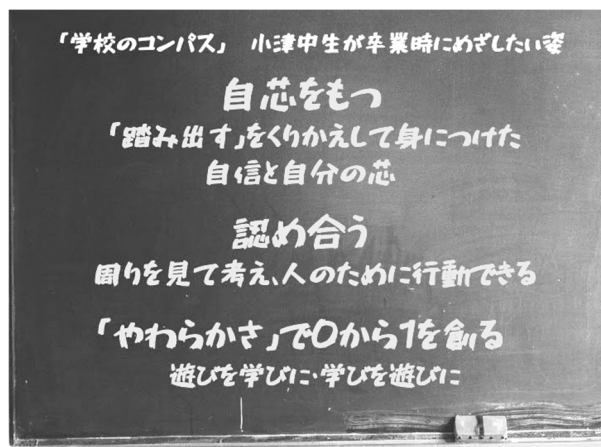 「学校のコンパス」　小津中生が卒業時にめざしたい姿
自芯をもつ
「踏み出す」をくりかえして身につけた
自信と自分の芯
認め合う
周りを見て考え、人のために行動できる
「やわらかさ」で0から1を創る
遊びを学びに・学びを遊びに